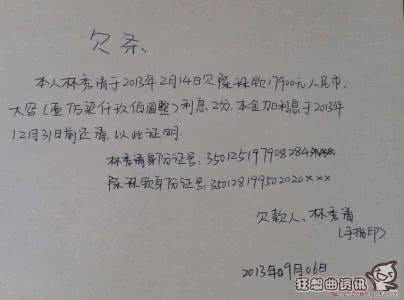 欠条、
本人林秀清于2013年2月14日欠陈珠钦17900元人民币,
大写(壹万柒仟玖佰圆整)利息2分,本金加利息于2013年
12月31日前还清,以此证明.
林秀清身份证号:350125197908284
陈珠钦身份证号:350128199502020×××
欠款人:林秀清
(手指印)
2013年9月06日
狂想曲资讯